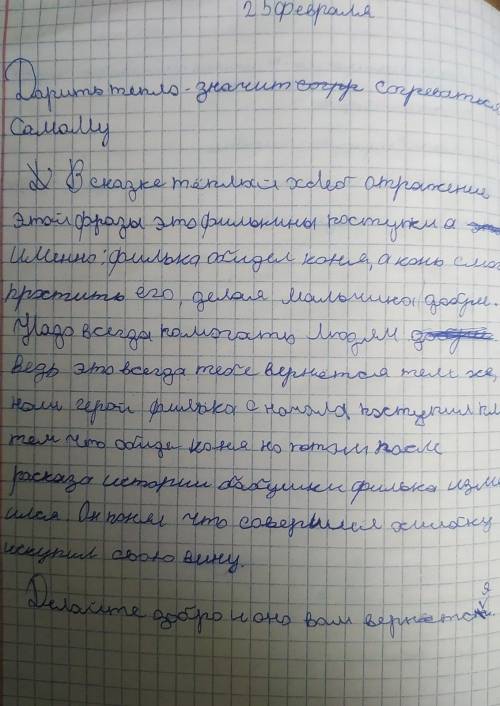 25 февраля
Дарить тепло - значит согр согреваться
самому
В сказке тёплый хлеб отражение
этой фразы это филькины поступки а
именно: филька обидел коня, а конь смог
простить его, делая мальчика добр.
Надо всегда помогать людям
ведь это всегда тебе вернётся тем же,
герой филька с начала поступил пл
тем что обиде коня но потом после
расказа истории бабушки филька изме
ился. Он понял что совершил
искупил свою вину.
Делайте добро и оно вам вернётся.